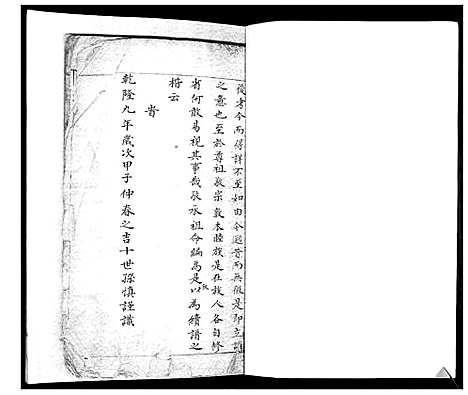 後者今而得詳不至如由今遡昔而無徵是即立譜
之意也至於尊祖敬宗敦本睦族是在族人各自修
省何敢易視其事哉敬承祖命編為是以為續譜之
将云
旹
乾隆九年歲次甲子仲春之吉十世孫慎謹識